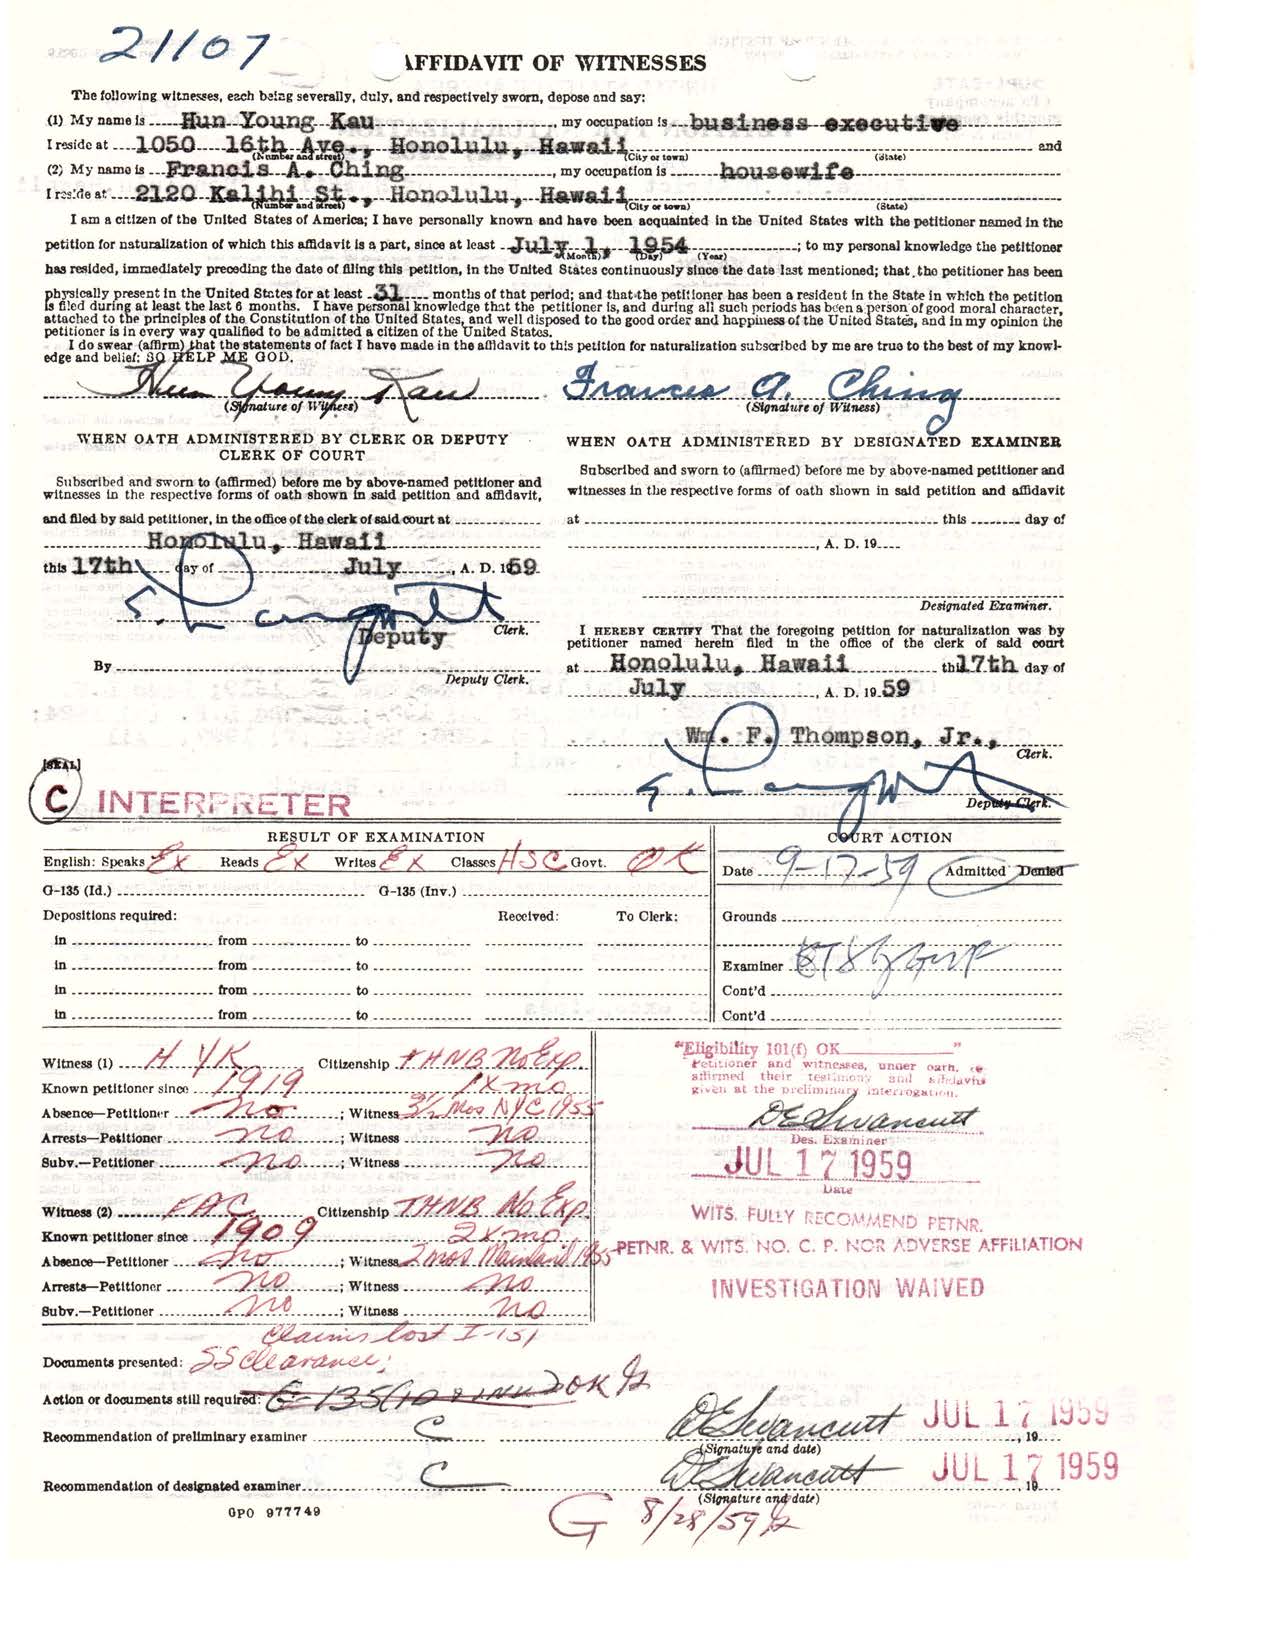 21107
AFFIDAVIT OF WITNESSES
The following witnesses, each being severally, duly, and respectively sworn, depose and say:
(1) My name is Hun Young Kau, my occupation is business executive
I reside at 1050 16th Ave., Honolulu, Hawaii and
(Number and street) (City or town) (State)
(2) My name is Francis A. Ching, my occupation is housewife
I reside at 2120 Kalihi St., Honolulu, Hawaii
(Number and street) (City or town) (State)
I am a citizen of the United States of America; I have personally known and have been acquainted in the United States with the petitioner named in the
petition for naturalization of which this affidavit is a part, since at least July 1, 1954; to my personal knowledge the petitioner
(Month) (Day) (Year)
has resided, immediately preceding the date of filing this petition, in the United States continuously since the date last mentioned; that the petitioner has been
physically present in the United States for at least 31 months of that period; and that the petitioner has been a resident in the State in which the petition
is filed during at least the last 6 months. I have personal knowledge that the petitioner is, and during all such periods has been a person of good moral character,
attached to the principles of the Constitution of the United States, and well disposed to the good order and happiness of the United States, and in my opinion the
petitioner is in every way qualified to be admitted a citizen of the United States.
I do swear (affirm) that the statements of fact I have made in the affidavit to this petition for naturalization subscribed by me are true to the best of my knowl-
edge and belief: SO HELP ME GOD.
Hun Young Kau Frances A. Ching
(Signature of Witness) (Signature of Witness)
WHEN OATH ADMINISTERED BY CLERK OR DEPUTY
CLERK OF COURT
Subscribed and sworn to (affirmed) before me by above-named petitioner and
witnesses in the respective forms of oath shown in said petition and affidavit,
and filed by said petitioner, in the office of the clerk of said court at
Honolulu, Hawaii
this 17th day of July, A. D. 1959
Deputy Clerk.
By
Deputy Clerk.
WHEN OATH ADMINISTERED BY DESIGNATED EXAMINER
Subscribed and sworn to (affirmed) before me by above-named petitioner and
witnesses in the respective forms of oath shown in said petition and affidavit
at this day of
, A. D. 19
Designated Examiner.
I HEREBY CERTIFY That the foregoing petition for naturalization was by
petitioner named herein filed in the office of the clerk of said court
at Honolulu, Hawaii th17th day of
July, A. D. 1959
Wm. F. Thompson, Jr.,
Clerk.
Deputy Clerk.
[SEAL]
C INTERPRETER
RESULT OF EXAMINATION
English: Speaks Ex Reads Ex Writes Ex Classes HSC Govt. OK
G-135 (Id.) G-135 (Inv.)
Depositions required: Received: To Clerk:
in from to
in from to
in from to
in from to
COURT ACTION
Date 9-17-59 Admitted Denied
Grounds
Examiner
Cont'd
Cont'd
Witness (1) HYK Citizenship THNB No Exp.
Known petitioner since 1919 1 x mo
Absence—Petitioner no; Witness 3½ mos NYC 1955
Arrests—Petitioner no; Witness no
Subv.—Petitioner no; Witness no
Witness (2) FAC Citizenship THNB No Exp
Known petitioner since 1909 2 x mo
Absence—Petitioner no; Witness 2 mos Mainland 1955
Arrests—Petitioner no; Witness no
Subv.—Petitioner no; Witness no
"Eligibility 101(f) OK"
Petitioner and witnesses, under oath, re
affirmed their testimony and affidavits
given at the preliminary interrogation.
D E Swancutt
Des. Examiner
JUL 17 1959
Date
WITS. FULLY RECOMMEND PETNR.
PETNR. & WITS. NO. C. P. NOR ADVERSE AFFILIATION
INVESTIGATION WAIVED
Claims lost I-151
Documents presented: SS Clearance;
Action or documents still required: G-135 OK
Recommendation of preliminary examiner C D E Swancutt JUL 17 1959
(Signature and date) , 19
Recommendation of designated examiner C D E Swancutt JUL 17 1959
(Signature and date) 19
GPO 977749
G 8/28/59